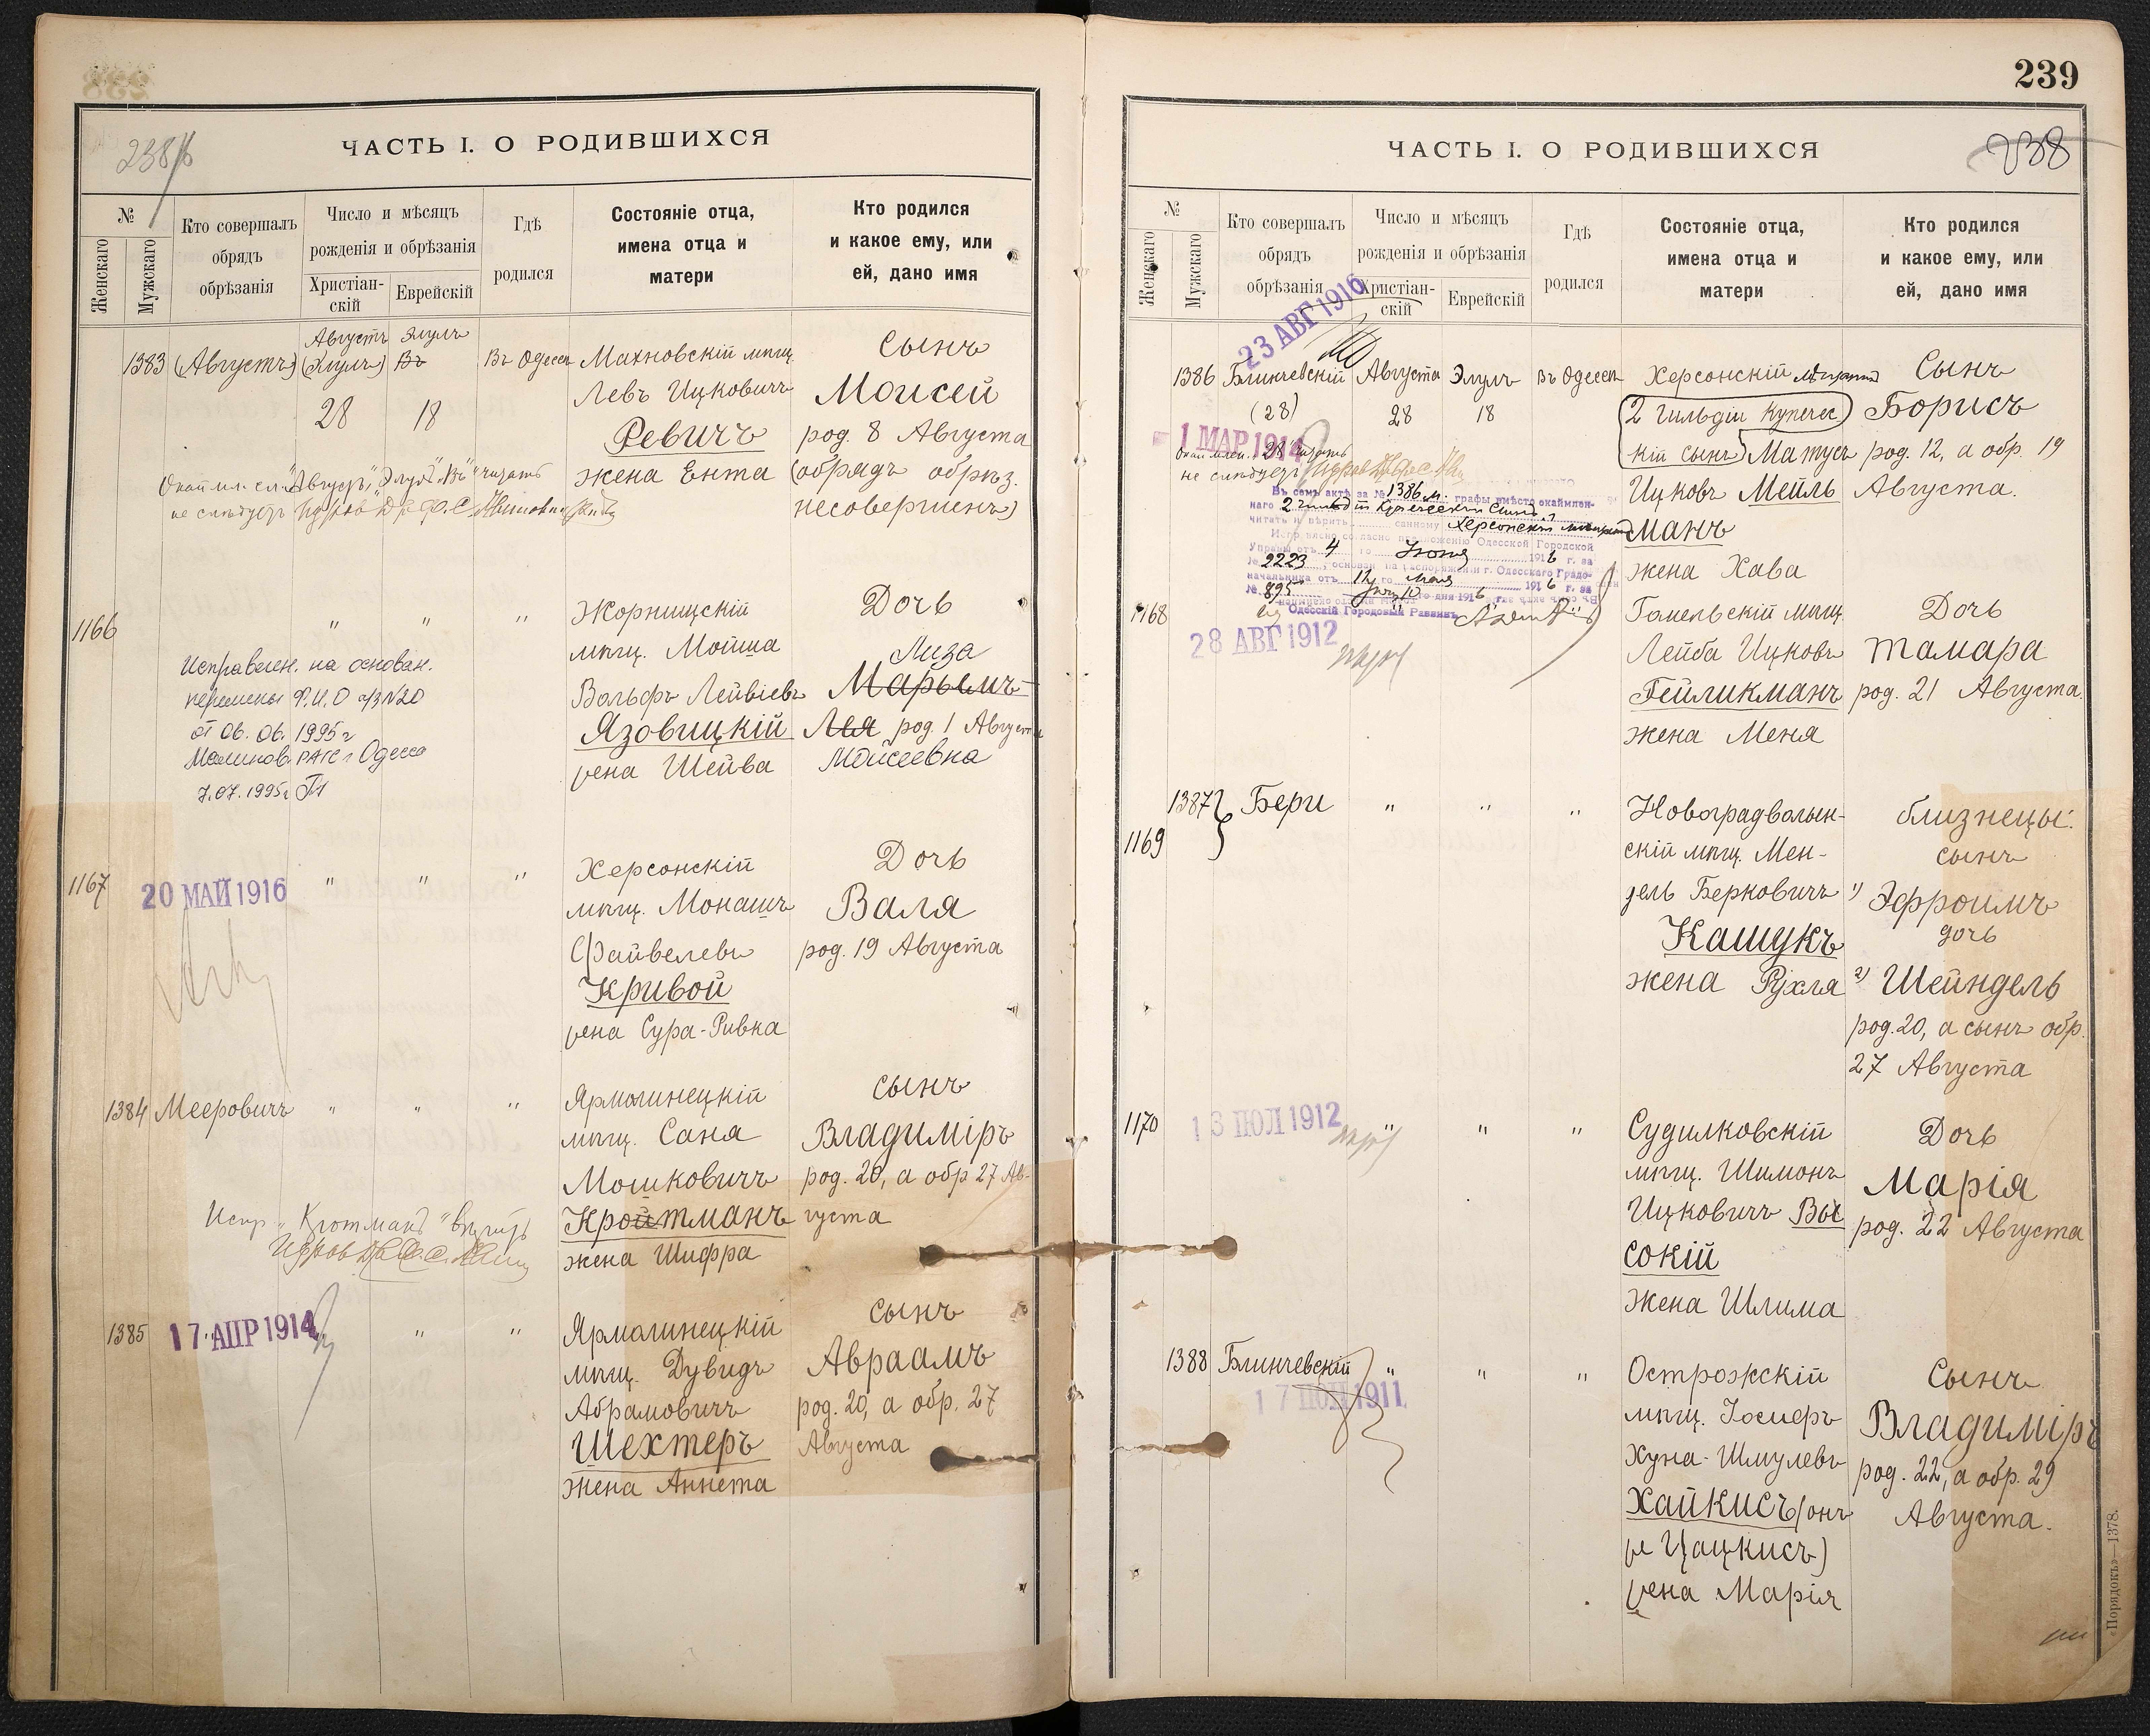 238/б
ЧАСТЬ I. О РОДИВШИХСЯ
№
Женскаго
Мужскаго
Кто совершалъ
обрядъ
обрѣзанія
Число и мѣсяцъ
рожденія и обрѣзанія
Христіан-
скій
Еврейскій
Гдѣ
родился
Состояніе отца,
имена отца и
матери
Кто родился
и какое ему, или
ей, дано имя
1383 (Августъ) Августъ Элулъ Въ Одессѣ Махновскій мѣщ. Сынъ
(Элулъ) Въ
28 18
Левъ Ицковичъ Моисей
Ревичъ род. 8 Августа
жена Ента (обрядъ обрѣз.
несовершенъ)
не слѣдуетъ
1166 " " " Жорнищскій Дочь
мѣщ. Мойша Лиза
Вольфъ Лейвіевъ Марьямъ
Язовицкій Лея род. 1 Августа
жена Шейва Мойсеевна
Исправлен. на основан.
перемены Ф.И.О а/з №20
от 06.06.1995 г
Малинов. РАГС г Одесса
7.07.1995г
1167 20 МАЙ 1916 " " " Херсонскій Дочь
мѣщ. Монашъ Валя
Файвелевъ род. 19 Августа
Кривой
жена Сура-Ривка
1384 Мееровичъ " " " Ярмолинецкій Сынъ
мѣщ. Саня Владиміръ
Мошковичъ род. 20, а обр 27 Ав-
Кройтманъ густа
жена Шифра
1385 " 17 АПР 1914 " " Ярмолинецкій Сынъ
мѣщ. Дувидъ Авраамъ
Абрамовичъ род. 20, а обр. 27
Шехтеръ Августа
жена Аннета
239
238
ЧАСТЬ I. О РОДИВШИХСЯ
№
Женскаго
Мужскаго
Кто совершалъ
обрядъ
обрѣзанія
Число и мѣсяцъ
рожденія и обрѣзанія
Христіан-
скій
Еврейскій
Гдѣ
родился
Состояніе отца,
имена отца и
матери
Кто родился
и какое ему, или
ей, дано имя
23 АВГ 1916
1386 Блинчевскій Августа Элулъ Въ Одессѣ Херсонскій мѣщанинъ Сынъ
(28) 28 18 2 гильдіи купечес Борисъ
1 МАР 1914
кій сынъ Матусъ род. 12, а обр. 19
Ицковъ Мейль Августа.
манъ
жена Хава
не слѣдуетъ
Въ семъ актѣ за № 1386 м. графы вмѣсто окаймлен-
наго 2 гильдіи купеческій сынъ
читать и вѣрить Херсонскій мѣщанинъ
Исправлено согласно предложенію Одесской Городской
Управы отъ 4 го Іюня 1916 г. за
№ 2223, основан. на распоряженіи г. Одесскаго Градо-
начальника отъ го Мая 1916 г. за
№ 895
Одесскій Городовый Раввинъ
1168 28 АВГ 1912 Гомельскій мѣщ. Дочь
Лейба Ицковъ Тамара
Гейликманъ род. 21 Августа.
жена Меня
1387 Бери " " " Новоградволын- близнецы:
1169 скій мѣщ. Мен- сынъ
дель Берковичъ 1) Эфроимъ
Кашукъ дочь
жена Рухля 2) Шейндель
род. 20, а сынъ обр.
27 Августа
1170 13 ІЮЛ 1912 " " " Судилковскій Дочь
мѣщ. Шимонъ Марія
Ицковичъ Вы род. 22 Августа
сокій
жена Шлима
1388 Блинчевскій " " " Острожскій Сынъ
17 1911
мѣщ. Іосифъ Владиміръ
Хуна-Шмулевъ род. 22, а обр. 29
Хайкисъ (онъ Августа.
же Цацкисъ)
жена Марія
«Порядокъ»—1378.